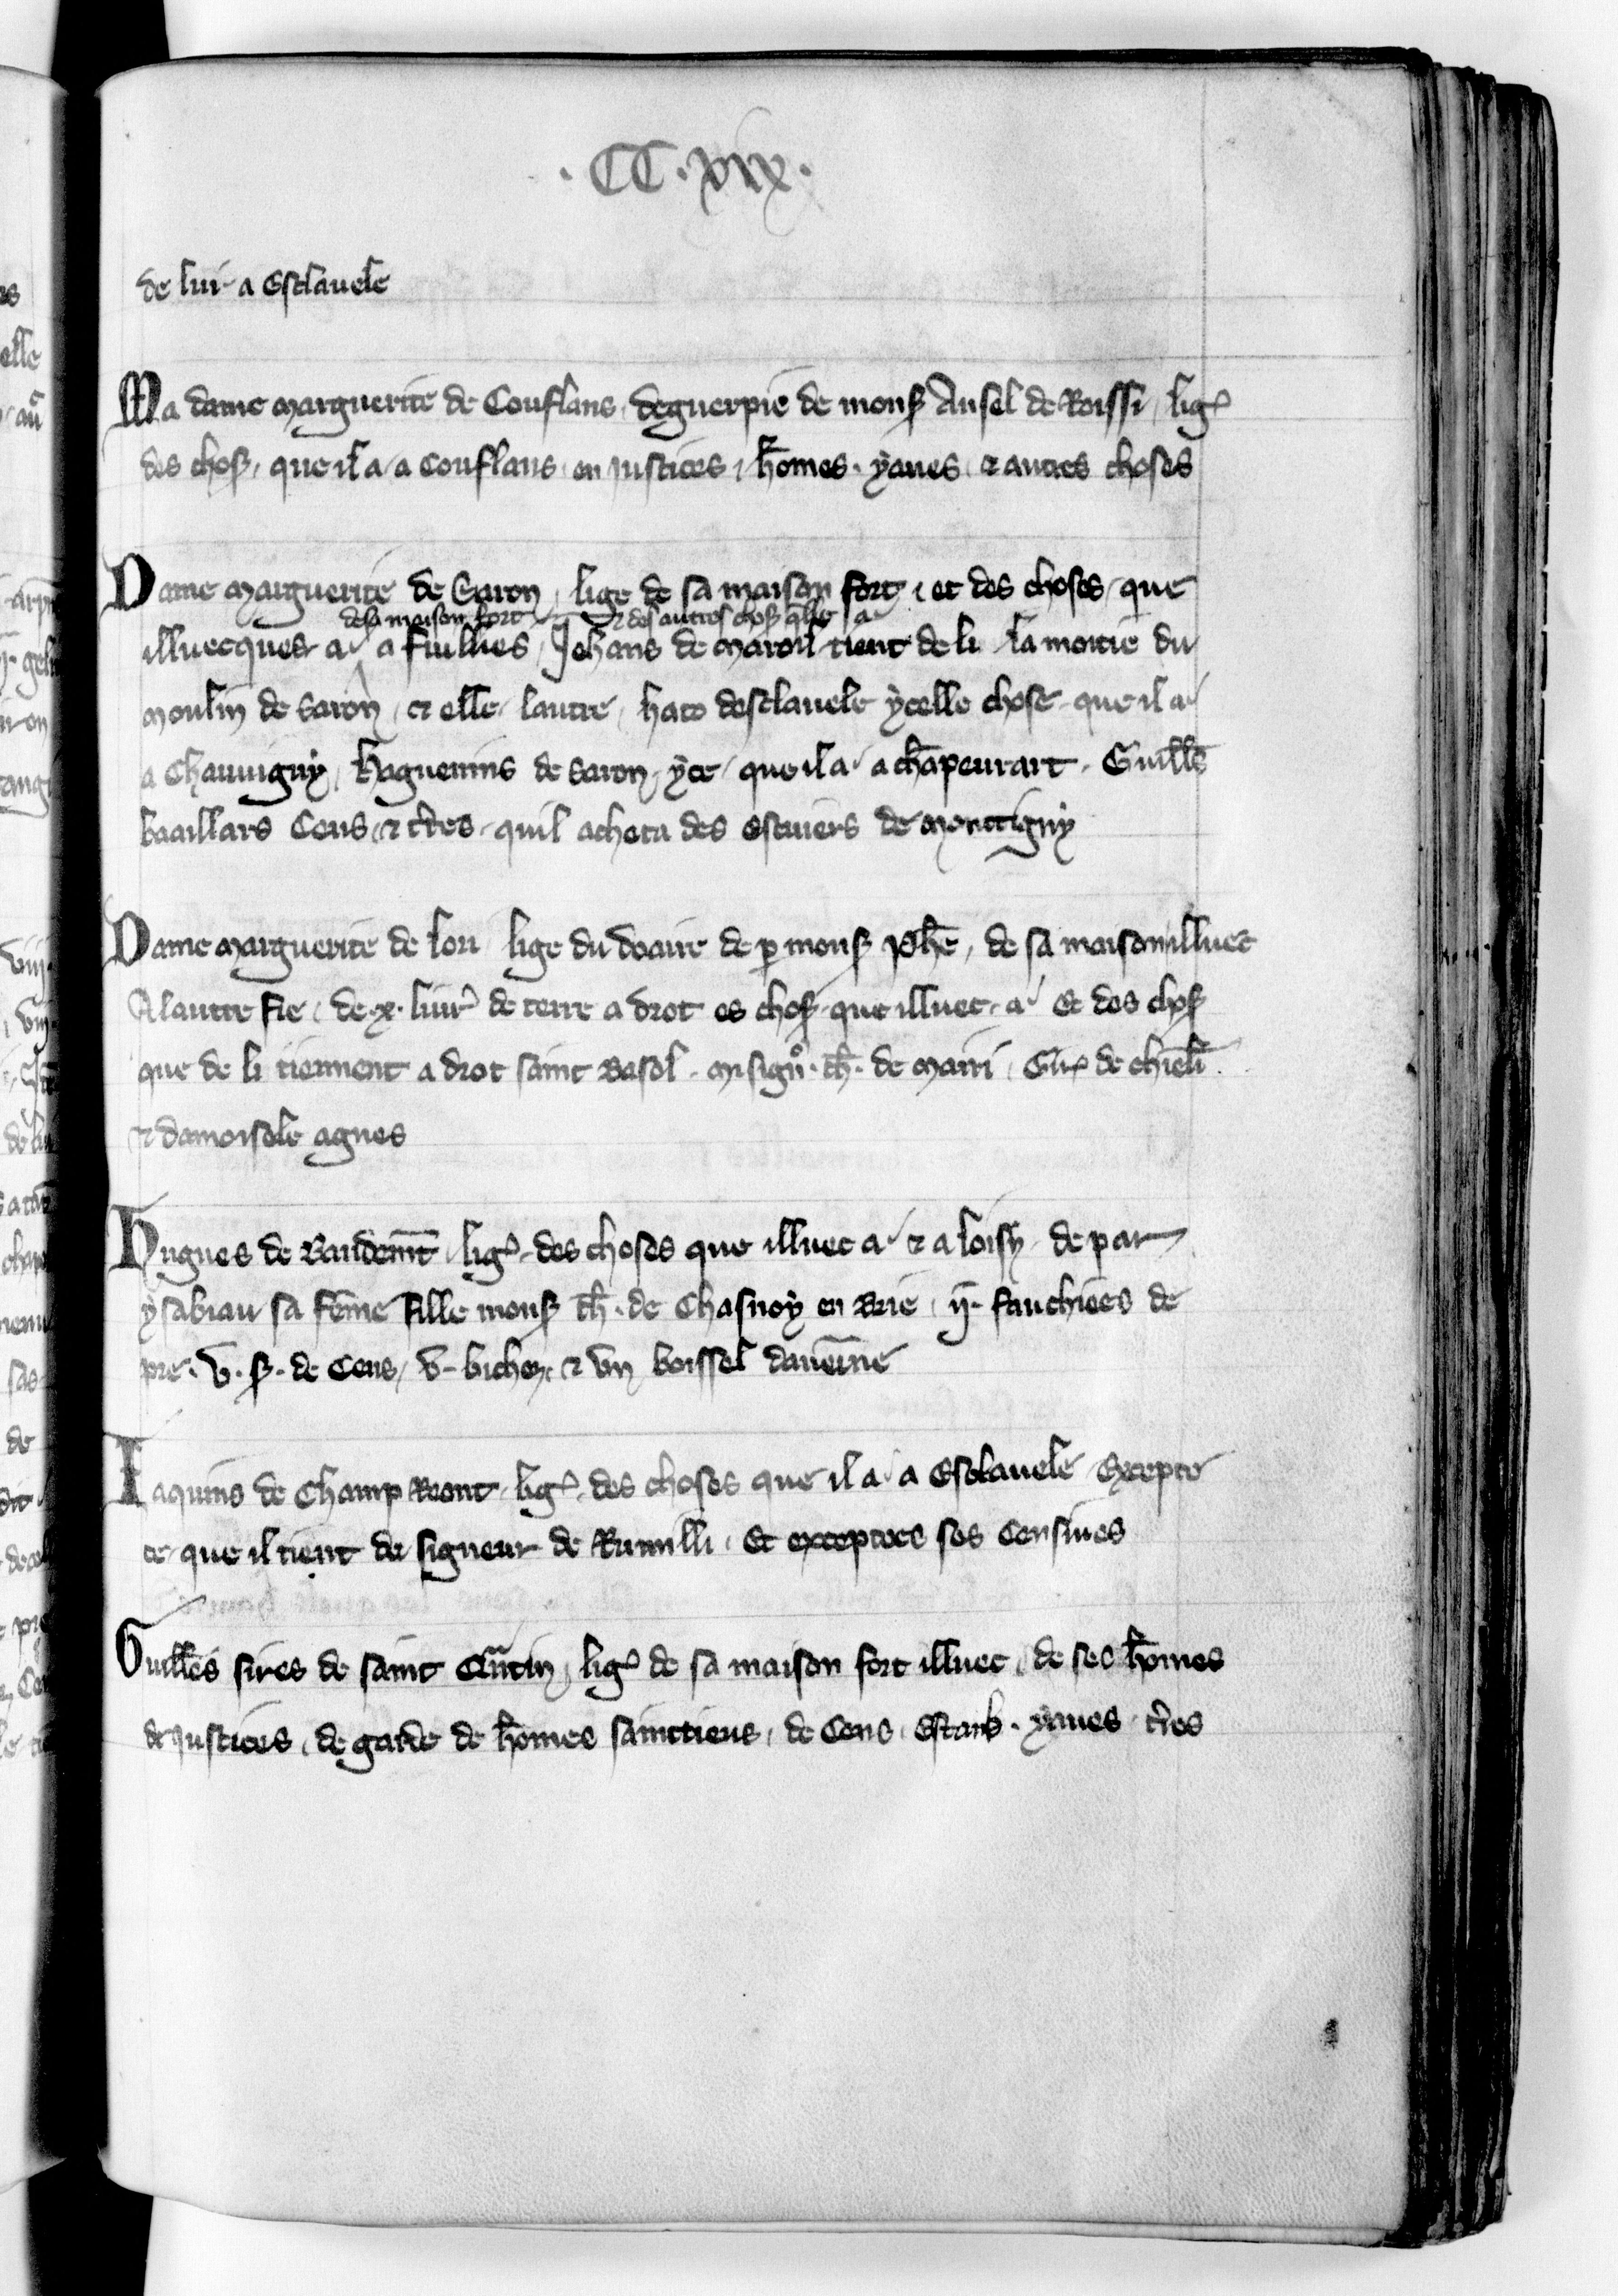 . CC . xix .
de lui a Esclauele
Ma dame marguerite de Conflans deguerpie de monsꝭ Ansel de Roissi ligꝭ
des chosꝭ que il a a Conflans en justices hōmes . yaues ⁊ autres choses
Dame marguerite de Saron lige de sa maison fort et des choses que
de sa maison fort ⁊ des autres chosꝭ q̄lle a
illuecques a a fuillies Jehans de maroil tient de li la moitie du
moulin de saron ⁊ elle lautre hato desclauele ycelle chose que il a
a Chauuigny haguenins de saron yce que il a a chāpeurart . Guill̄e
baaillars Cens ⁊ t̄res quil acheta des escuiers de monttigny
Dame marguerite de lori lige du doaire de ꝑ monsꝭ Jeh̄e de sa maison illuec
A lautre fie de .x. liurꝭ de terre a drot es chosꝭ que illuec a Et des chosꝭ
que de li tiennent a drot saint Basol . misign̊ . th̄ . de marri Girꝭ de chieli
⁊ damoisele agnes
Hugues de Baudem̄t ligꝭ des choses que illuec a ⁊ a loisy de par
ysabiau sa fēme fille monsꝭ th̄ . de Chasnoy en Brie ij . fauchiees de
pre . v . ſ . de Cens v bichez ⁊ vn boissel daueinne
Iaquins de Champ Reont ligꝭ des choses que il a a Esclauele Excepte
ce que il tient de signeur de Rumilli . Et exceptees ses Censiues
Guill̄es sires de saint Qūtin ligꝭ de sa maison fort illuec de ses hōmes
de Justices de garde de hōmes sainctiens de Cens Estanz . yaues t̄res